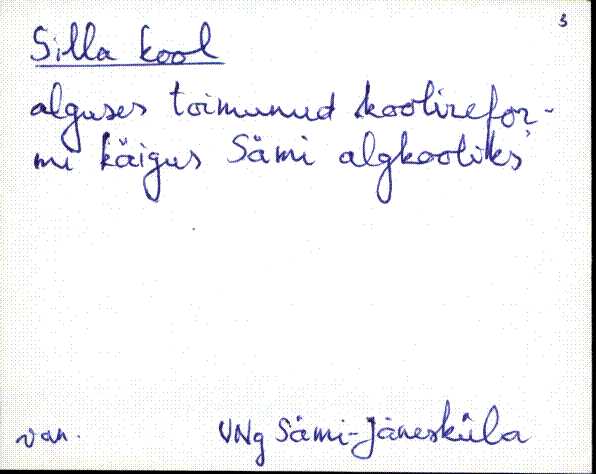 3
Silla kool
alguses toimunud koolirefor-
mi käigus Sämi algkooliks
van. VNg Sämi-Jänesküla